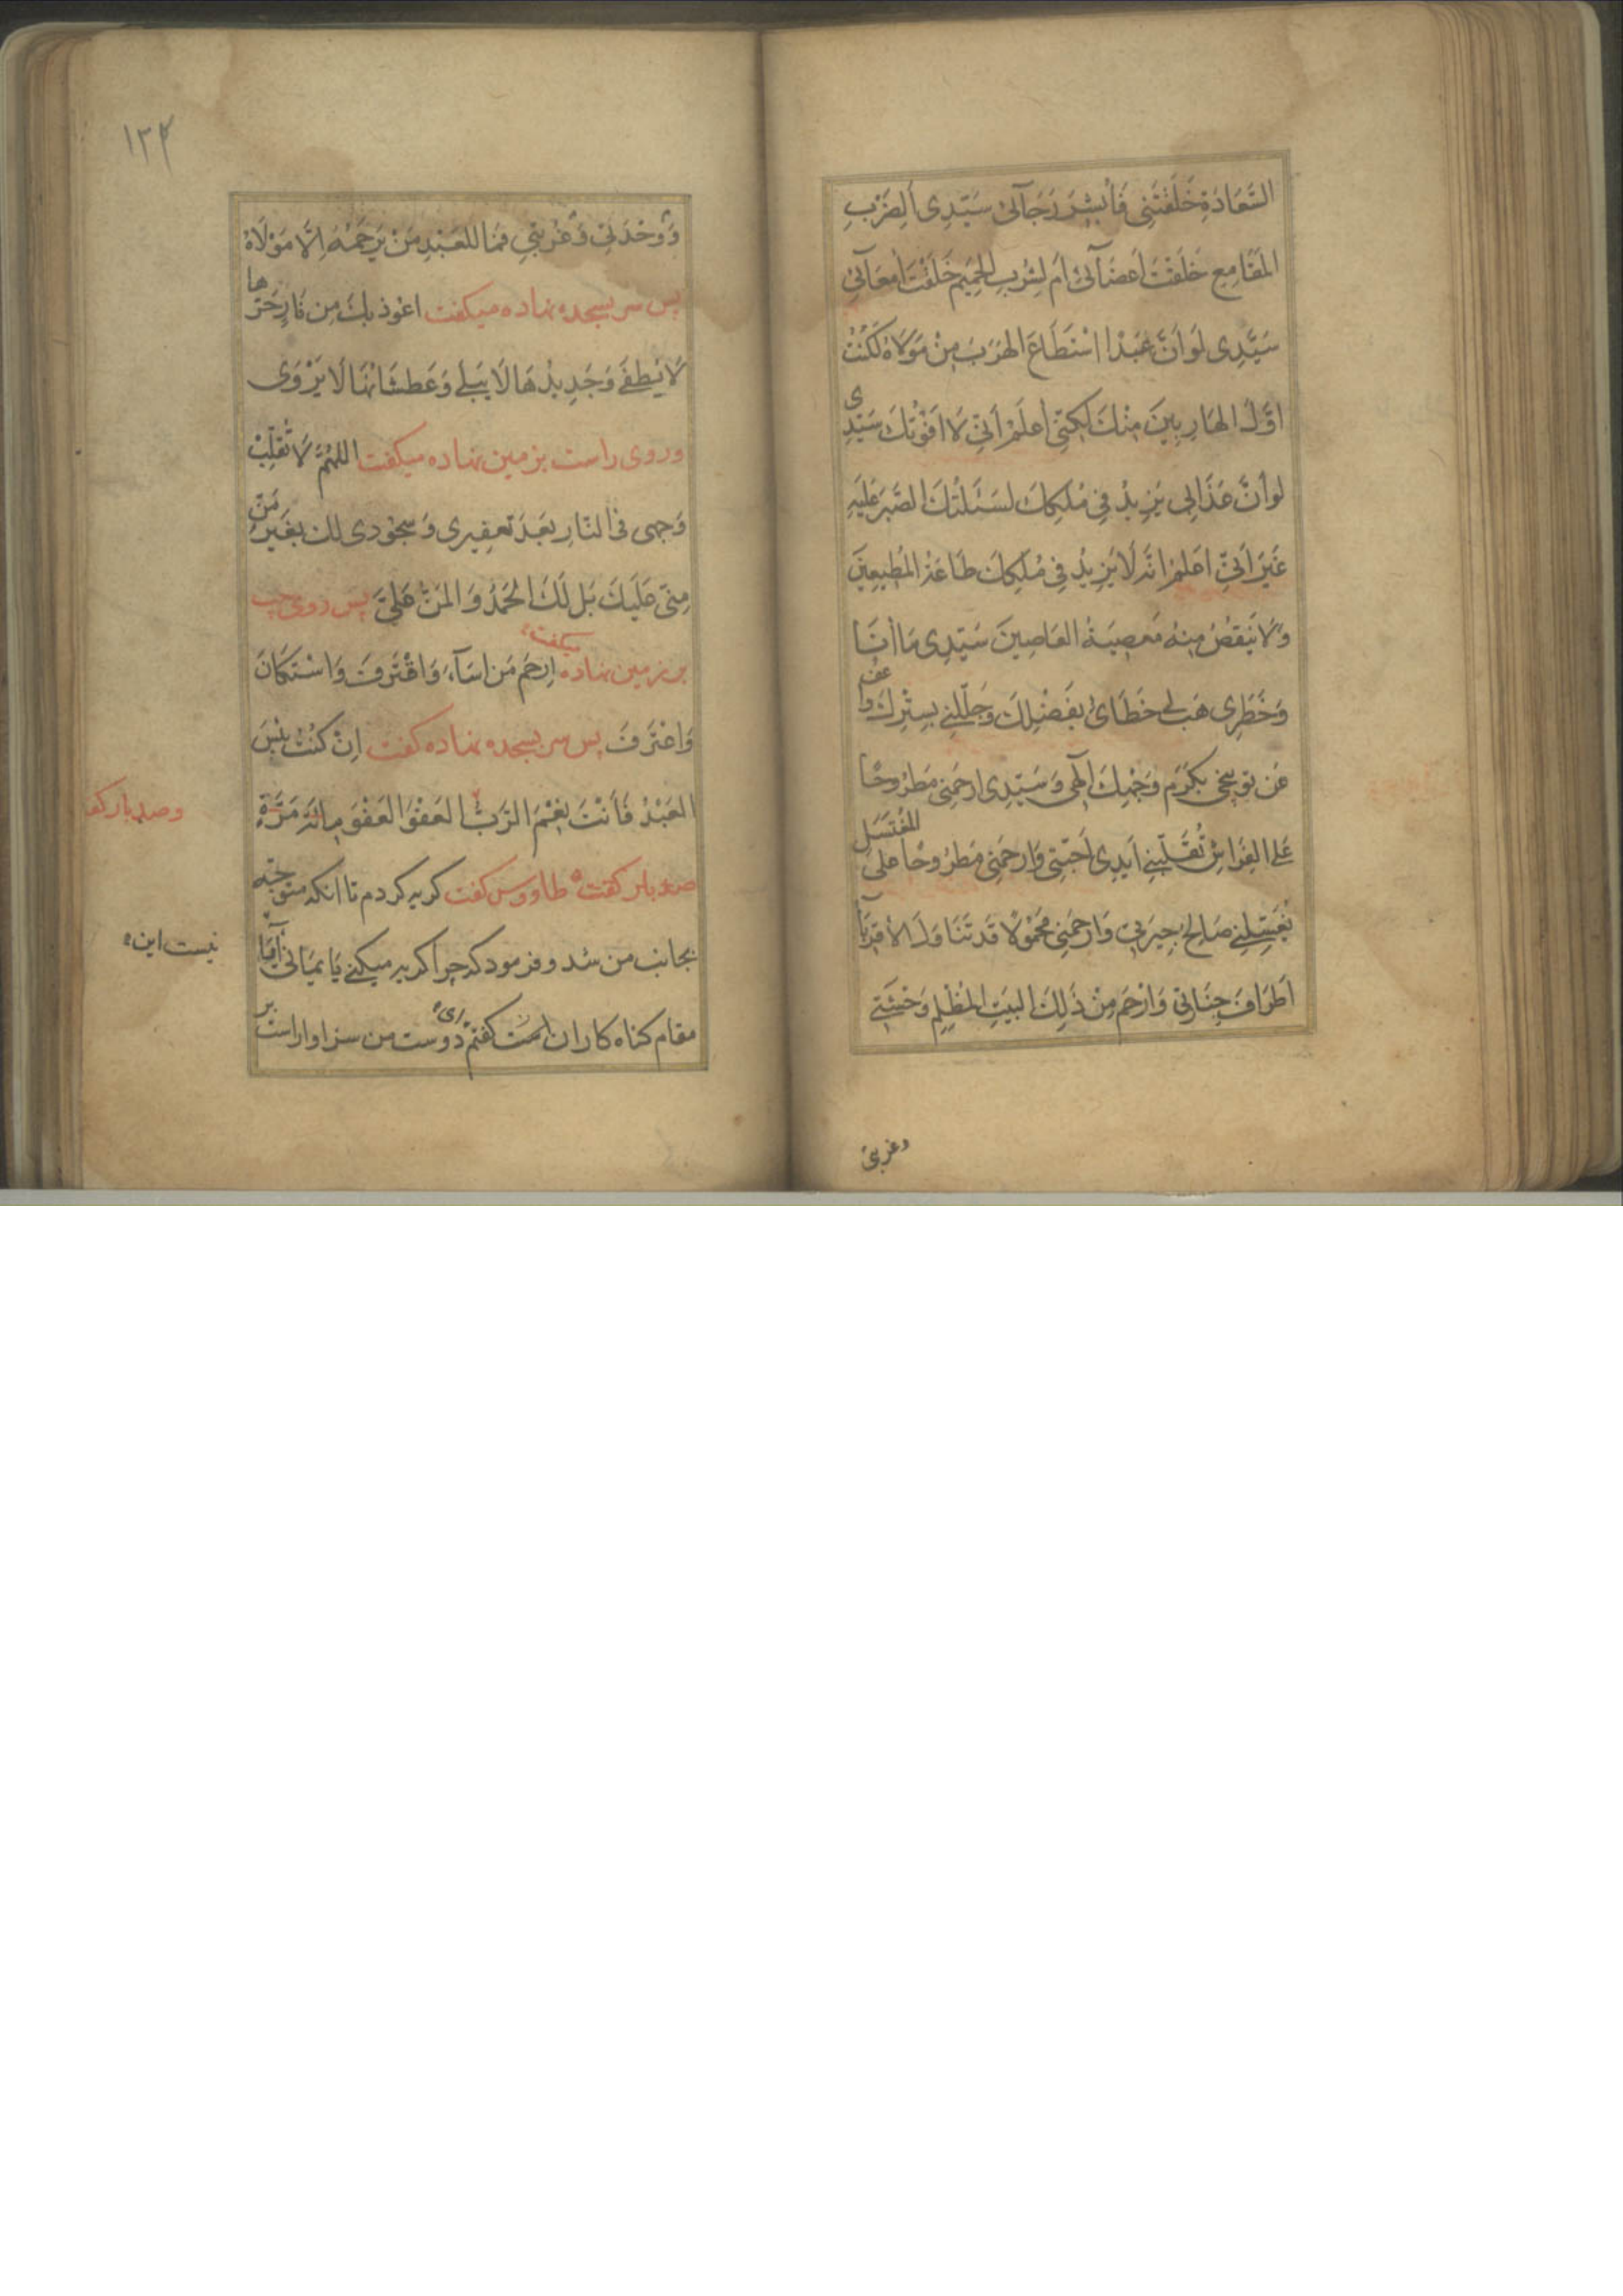 السَّعَادَةِ خَلَقْتَنِی فَاُبْشِرَ رَجَآئی سَیِّدِی اَلِضَرْبِ
المَقَامِعِ خَلَقْتَ اَعضَآئی اَم لِشُربِ الحَمِیمِ خَلَقْتَ اَمعَآئی
سَیِّدِی لَو اَنَّ عَبْدًا اسْتَطَاعَ الهَرَبَ مِنْ مَوْلَاهُ لَکُنْتُ
اوَّلَ الهَارِبِینَ مِنْكَ لٰکِنّی اَعلَمُ اَنّی لَا اَفُوتُكَ سَیِّدِی
لَو اَنَّ عَذَابِی یَزِیدُ فِی مُلکِكَ لَسَئَلتُكَ الصَّبرَ عَلَیهِ
غَیرَ اَنّی اَعلَمُ اَنَّه لَا یَزِیدُ فِی مُلکِكَ طَاعَةُ المُطِیعِینَ
وَلَا یَنقُصُ مِنهُ مَعصِیَةُ العَاصِینَ سَیِّدِی مَا اَنَا
وَخَطَرِی هَب لی خَطَائی بِفَضْلِكَ وَجَلِّلنی بِسِتْرِكَ وَاعفُ
عَن تَوبِیخی بِکَرَمِ وَجْهِكَ اِلٰهی وَسَیِّدِی ارحَمنِی مَطرُوحًا
عَلَی الفِرَاشِ تُقَلِّبُنِی اَیدِی اَحِبَّتِی وَارحَمنِی مَطرُوحًا عَلَی المُغتَسَلِ
یُغَسِّلُنِی صَالِحُ جِیرَتی وَارحَمنِی مَحمُولًا قَد تَنَاوَلَ الاَقرِبَآ
اَطرَافَ جِنَازَتی وَارْحَم مِنْ ذٰلِكَ البَیتِ المُظْلِمِ وَحْشَتی
وغربتی
۱۲۴
وَوَحْدَتی وَغُربَتِی فَمَا لِلعَبْدِ مَنْ یَرحَمُهُ اِلَّا مَوْلَاهُ
پس سر بسجده نهاده میکفت اعُوذ بِكَ مِن نَارٍ حَرُّها
لَا یُطفی وَجَدِیدُهَا لَا یَبلی وَعَطشَانُهَا لَا یَرْوَی
وروی راست بزمین نهاده میکفت اللهُمَّ لَا تُقَلِّبْ
وَجهی فی النَّارِ بَعدَ تَعفِیری وَسُجُودی لك بِغَیرِ مَنٍّ
مِنّی عَلَیكَ بَل لَكَ الحَمدُ وَالمَنُّ عَلَیَّ پس روی چپ
بر زمین نهاده میکفت اِرحَم مَن اَسَآءَ وَاقْتَرَفَ وَاسْتَکَانَ
وَاعْتَرَفَ پس سر بسجده نهاده کفت اِنْ کُنْتُ بِئْسَ
العَبْدُ فَاَنْتَ نِعْمَ الرَّبُّ العَفْوَ العَفْوَ مِائَةَ مَرَّةٍ
وصد بار کفت
صد بار کفت طاووس کفت کریه کردم تا انکه متوجّه
بجانب من شد و فرمود که چرا کریه میکنی یَا یَمَانی آیا
نیست این
مقام کناه کاران است کفتم ای دوست من سزاوار است بر